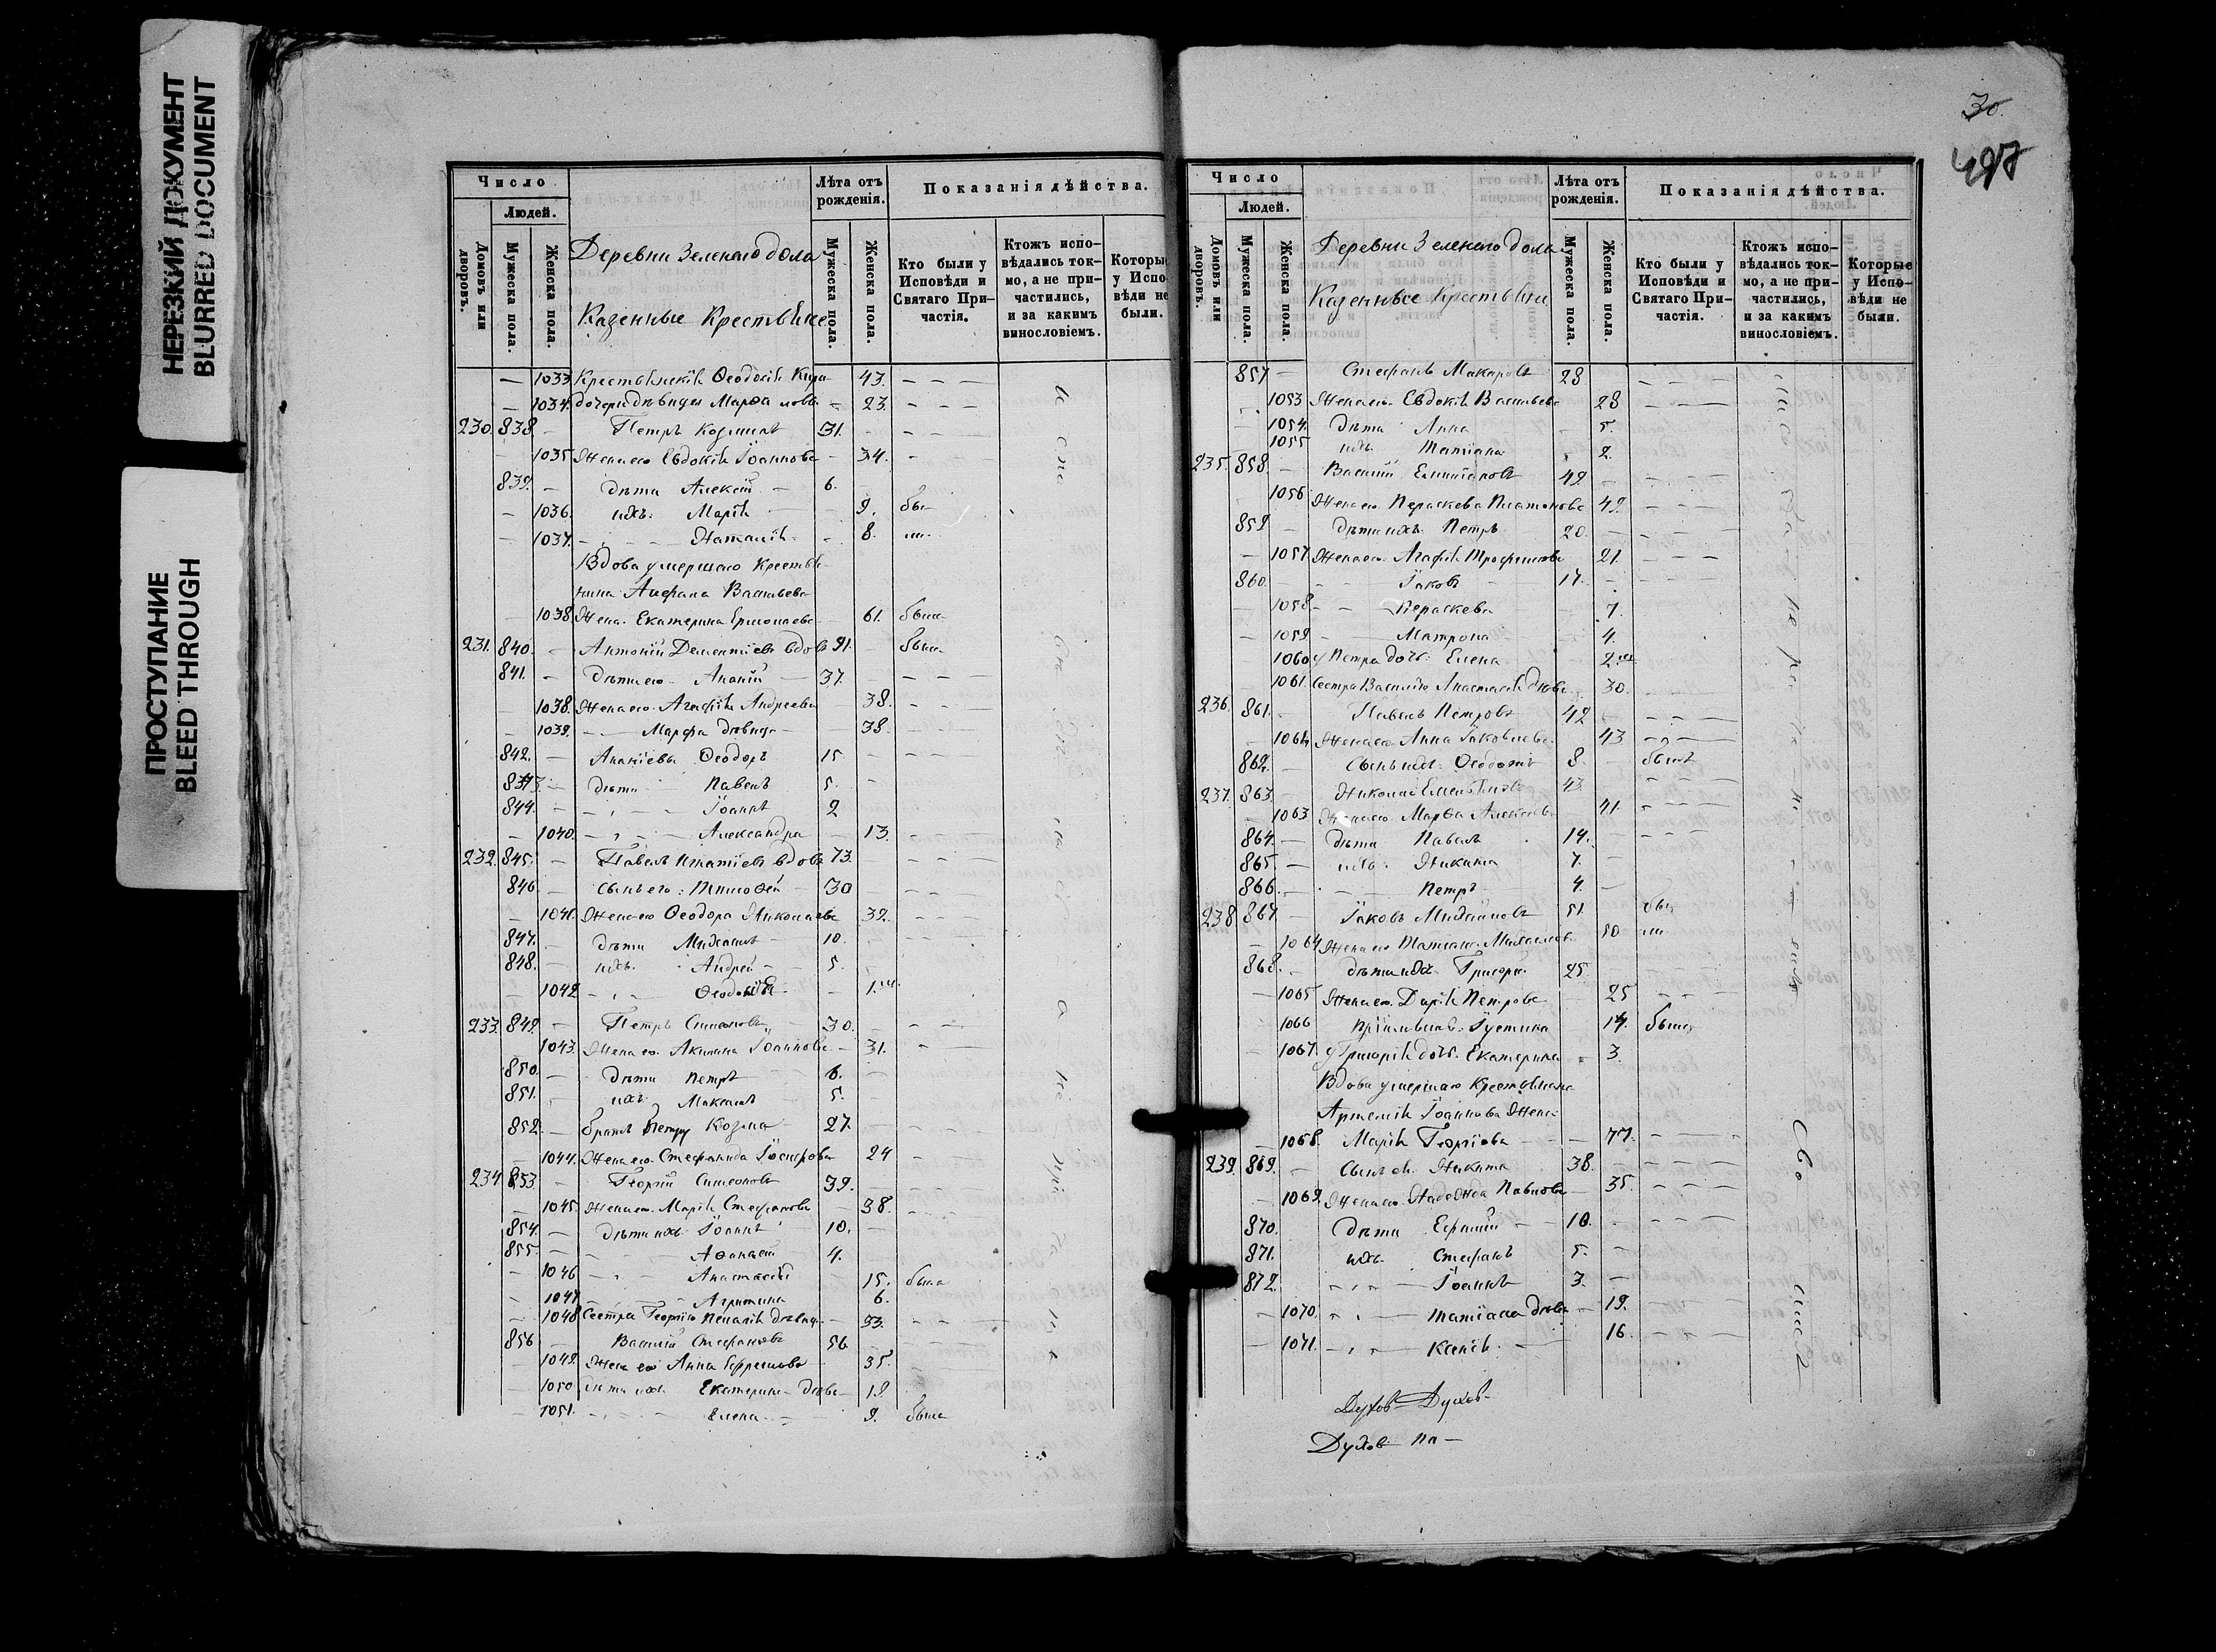 НЕРЕЗКИЙ ДОКУМЕНТ
BLURRED DOCUMENT
ПРОСТУПАНИЕ
BLEED THROUGH
Число
Людей.
Домовъ или дворовъ.
Мужеска пола.
Женска пола.
Деревни Зеленаго дола
Казенные Крестьяне
Лѣта отъ рожденія.
Мужеска пола.
Женска пола.
Показанія дѣйства.
Кто были у Исповѣди и Святаго Причастія.
Ктожъ исповѣдались токмо, а не причастились, и за какимъ винословіемъ.
Которые у Исповѣди не были.
— 1033 Крестьянскія Ѳеодосія Кири- 43. – – —
— 1034. дочери дѣвица Марѳа лова – 23. – – —
230. 838. — Петръ Козминъ 31. – – —
1035 Жена его Евдокія Іоаннова – 34. –
839. — дѣти Алексѣй — 6.
— 1036. ихъ. Марія — 9. бы
— 1037. – – Наталія – 8. ли.
Вдова умершаго Крестья-
нина Стефана Васильева
1038. Жена. Екатерина Ермолаева 61. была
231. 840. — Антоній Дементіевъ вдовъ 91. былъ
841. — Дѣти его Ананій — 37. – – —
— 1038. Жена его Агафія Андреева — 38. – – —
— 1039. – — Марѳа дѣвица — 38. – —
842. — Ананіевы Ѳеодоръ 15 – – —
843. — дѣти Павелъ 5. –
844. — – — Іоаннъ 2
— 1040. – – — Александра — 13. – –
232. 845. — Павелъ Игнатіевъ вдовъ 73. – – —
846 — сынъ его: Тимоѳей — 30 – –
— 1041. Жена его Ѳеодора Николаева 32. – – —
847. — дѣти Михаилъ — 10. –
848. — ихъ. Андрей – – 5. –
— 1042 – – Ѳеодосія – 1.
233. 849. — Петръ Симоновъ — 30. – – —
1043. Жена его Акилина Іоаннова – 31. – —
850. — Дѣти Петръ 6. —
851. ихъ. Максимъ 5. –
852. — братъ Петру Козма — 27. – – —
— 1044. Жена его Стефанида Іосифова 24 – —
234 853 — Георгій Симеоновъ 39. – – —
— 1045. Жена его Марія Стефанова — 38. – – —
854. — дѣти ихъ Іоаннъ — 10. —
855. — Аѳанасій 4.
— 1046 — – Анастасія – 15. была
— 1047 Агрипина 6.
— 1048 Сестра Георгію Пелагія дѣвица – 33. – – —
856 — Василій Стефановъ 56
— 1049. Жена его Анна Ефремова 35.
— 1050 Дѣти ихъ Екатерина – дѣва — 19.
— 1051. – – — Елена — 9. была
30.
497
Число
Людей.
Домовъ или дворовъ.
Мужеска пола.
Женска пола.
Деревни Зеленаго дола
Казенные Крестьяне
Лѣта отъ рожденія.
Мужеска пола.
Женска пола.
Показанія дѣйства.
Кто были у Исповѣди и Святаго Причастія.
Ктожъ исповѣдались токмо, а не причастились, и за какимъ винословіемъ.
Которые у Исповѣди не были.
857 — Стефанъ Макаровъ 28 – – —
1053 Жена его Евдокія Васильева 28 – – —
— 1054. Дѣти Анна 5.
1055 ихъ. Татіана 2.
235. 858. — Василій Емиліановъ 49. – – —
1056 Жена его Параскева Платонова 49. – – —
859 — Дѣти ихъ Петръ 20. – – —
— 1057 Жена его Агафія Трофимова 21. – – —
860. — Іаковъ 17. – – —
— 1058 – – Параскева 7.
— 1059 – — Матрона 4.
1060 у Петра дочь: Елена 2.
1061. Сестра Василію Анастасія дѣва 30. – —
236. 861. — Павелъ Петровъ 42 – – —
— 1062 Жена его Анна Іаковлева 43 – – —
862. — Сынъ ихъ. Ѳеодотъ 8. былъ
237. 863. — Николай 43. – – —
— 1063 Жена его Марѳа Алексѣева 41. – —
864. — Дѣти Павелъ 14. – – —
865. — ихъ. Никита 7. —
866. — – — Петръ 4. —
238 867. — Іаковъ Михайловъ 51. бы
— 1064 Жена его Татіана Михайлова 50 ли
868. — Дѣти ихъ Григорій 25.
— 1065 Жена его. Дарія Петрова 25 – – —
— 1066 Іустина 14. была
— 1067. у Григорія дочь. Екатерина 3.
Вдова умершаго Крестьянина
Артемія Іоаннова Жена
— 1068. Марія Георгіева — 77. – —
239. 869. — Сынъ ея Никита — 38. – – —
— 1069. Жена его Надежда Павлова — 35. – – —
870. Дѣти Ефимій — 10. – – —
871. ихъ Стефанъ 5. –
872. – – — Іоаннъ 3. —
— 1070. – – — Татіана дѣва – 19. – —
— 1071. – – — Ксенія. — 16. – – —
Духов Духов
Духов па –